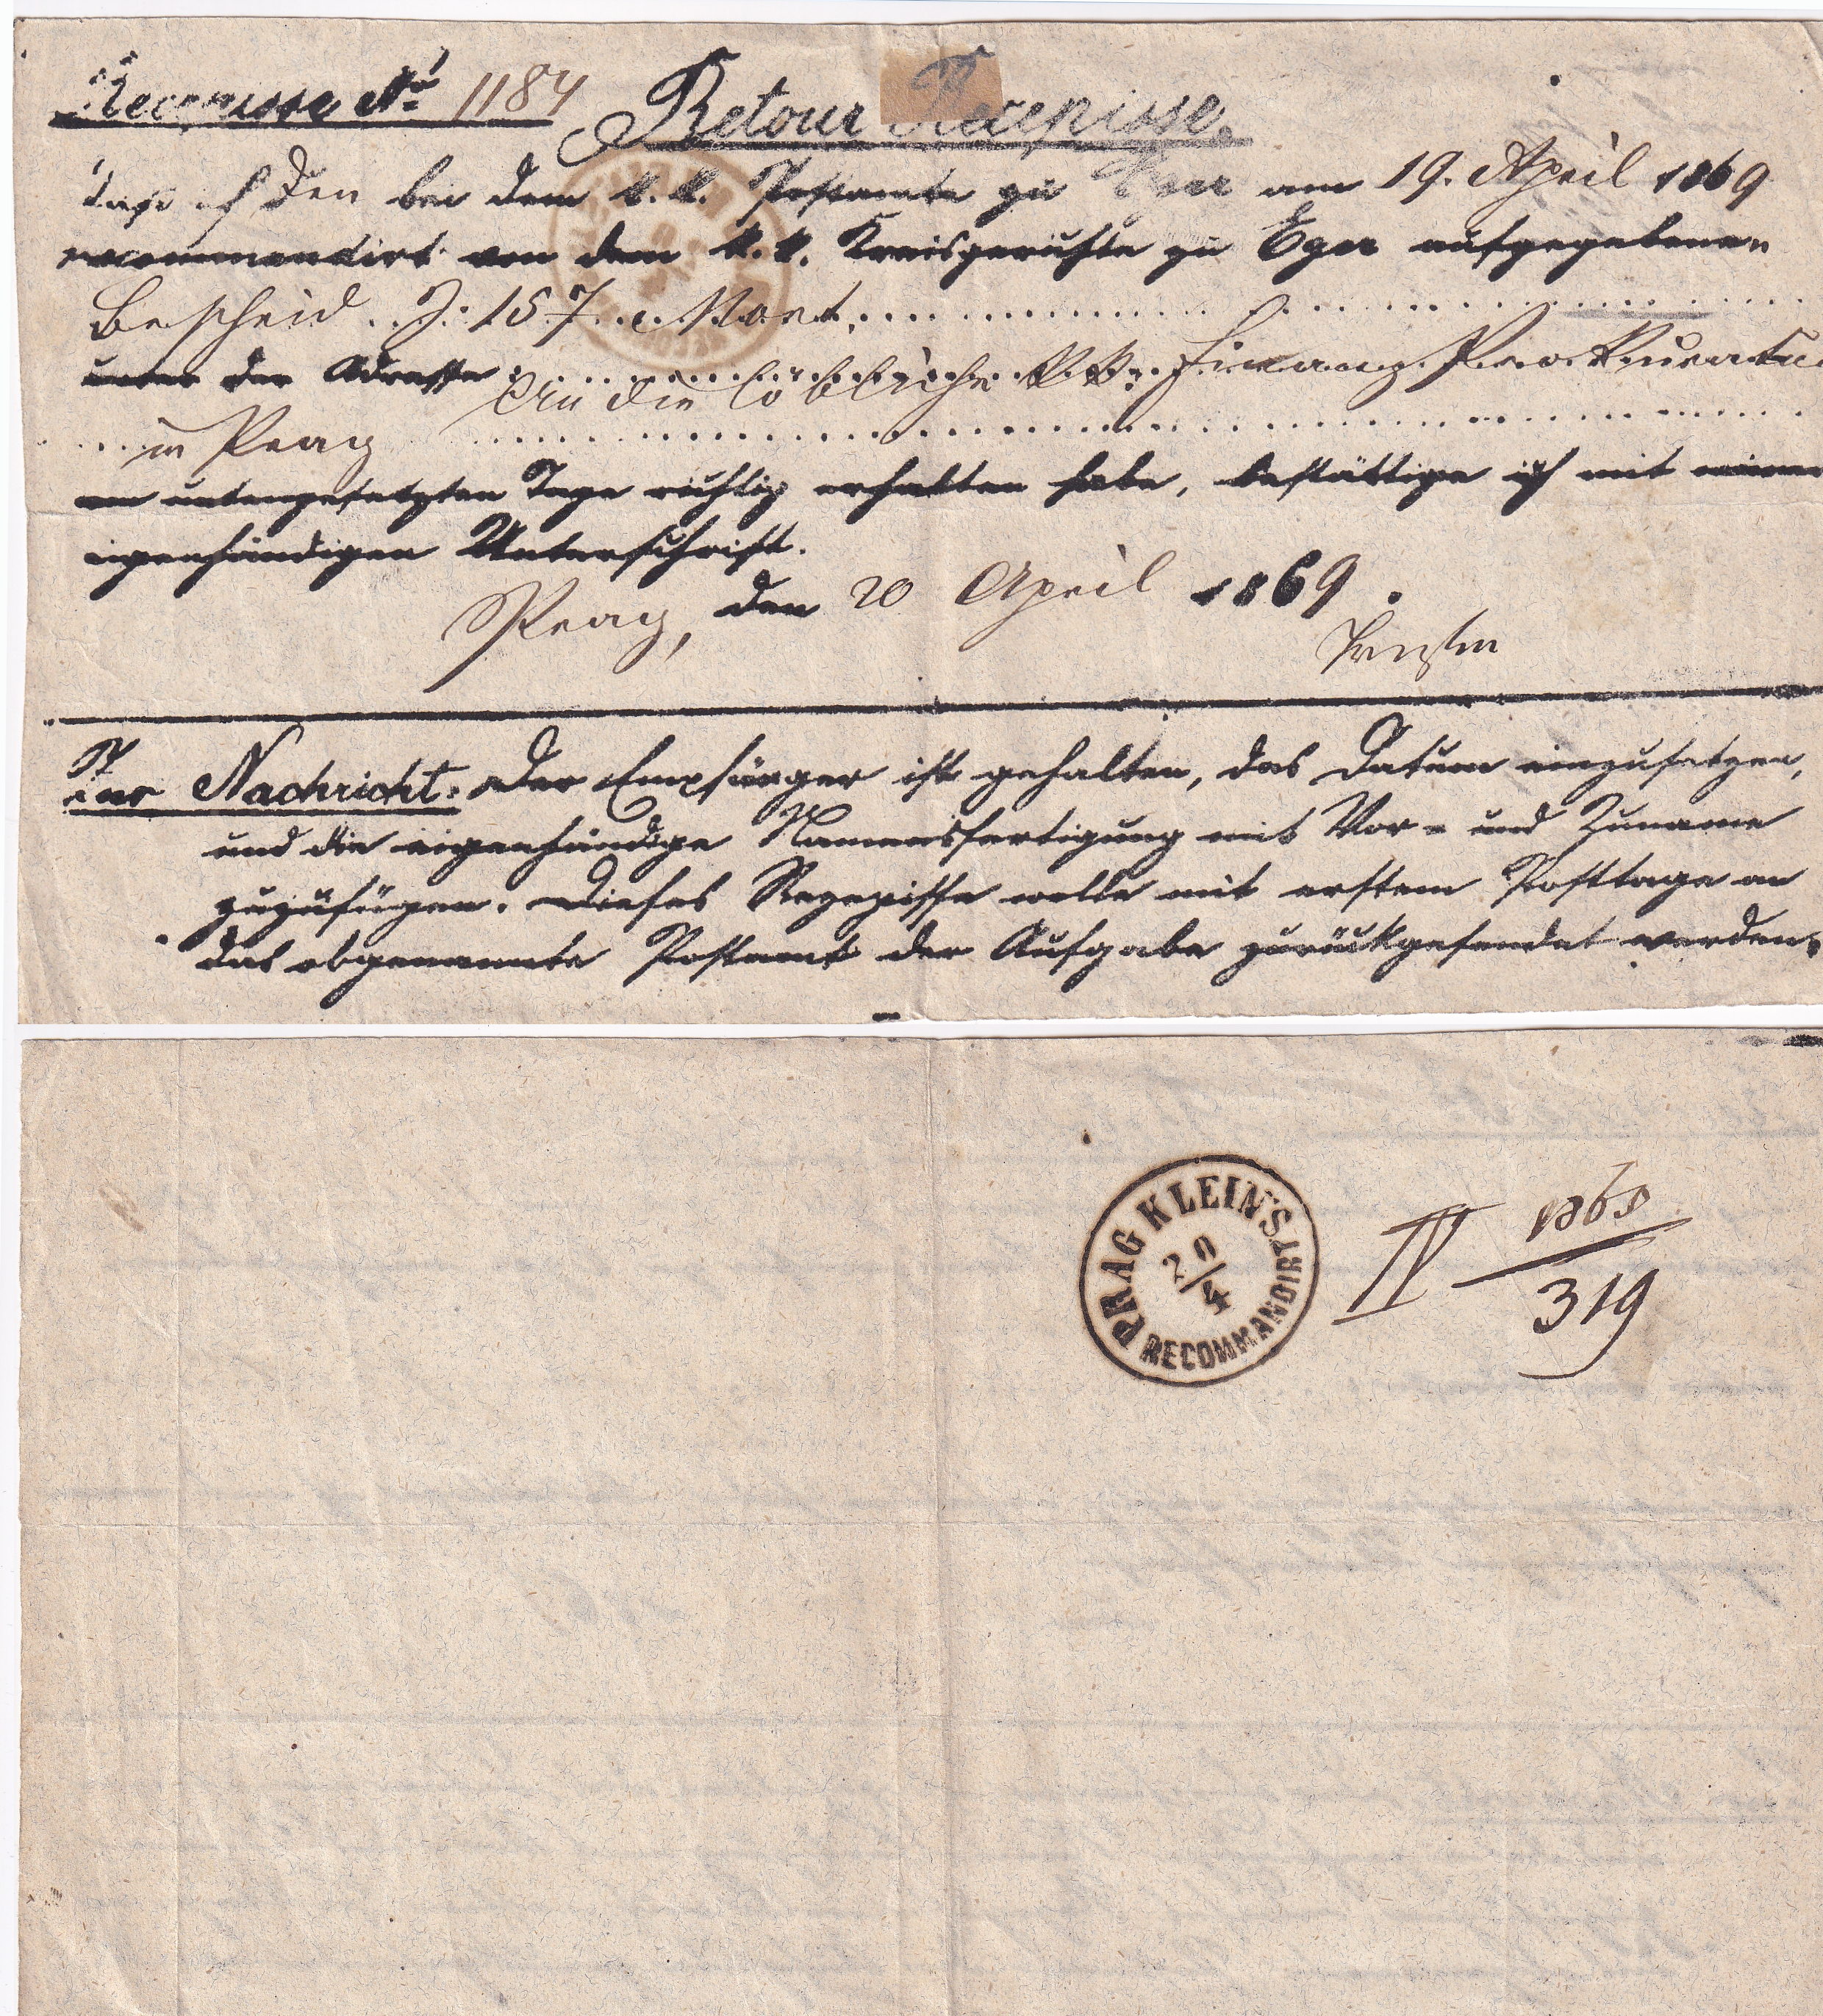 Recepisse No. 1184 Retour Recepisse.
daß ich den bei dem k.k. Postamte zu Eger am 19. April 1869
recommandirt von dem k.k. Kreisgerichte zu Eger aufgegebenen
Bescheid Z: 157
unter der Adresse An die löbliche k.k. Finanz Prokuratur
in Prag
am untengesetzten Tage richtig erhalten habe, bestättige ich mit meiner
eigenhändigen Unterschrift.
Prag, den 20 April 1869.
Zur Nachricht. Der Empfänger ist gehalten, das Datum einzusetzen,
und die eigenhändige Namensfertigung mit Vor- und Zuname
zuzufügen. Dieses Rezepisse wolle mit erstem Posttage an
das obgenannte Postamt der Aufgabe zurückgesendet werden.
PRAG KLEINS.
20/4
RECOMMANDIRT
IV 1869
319